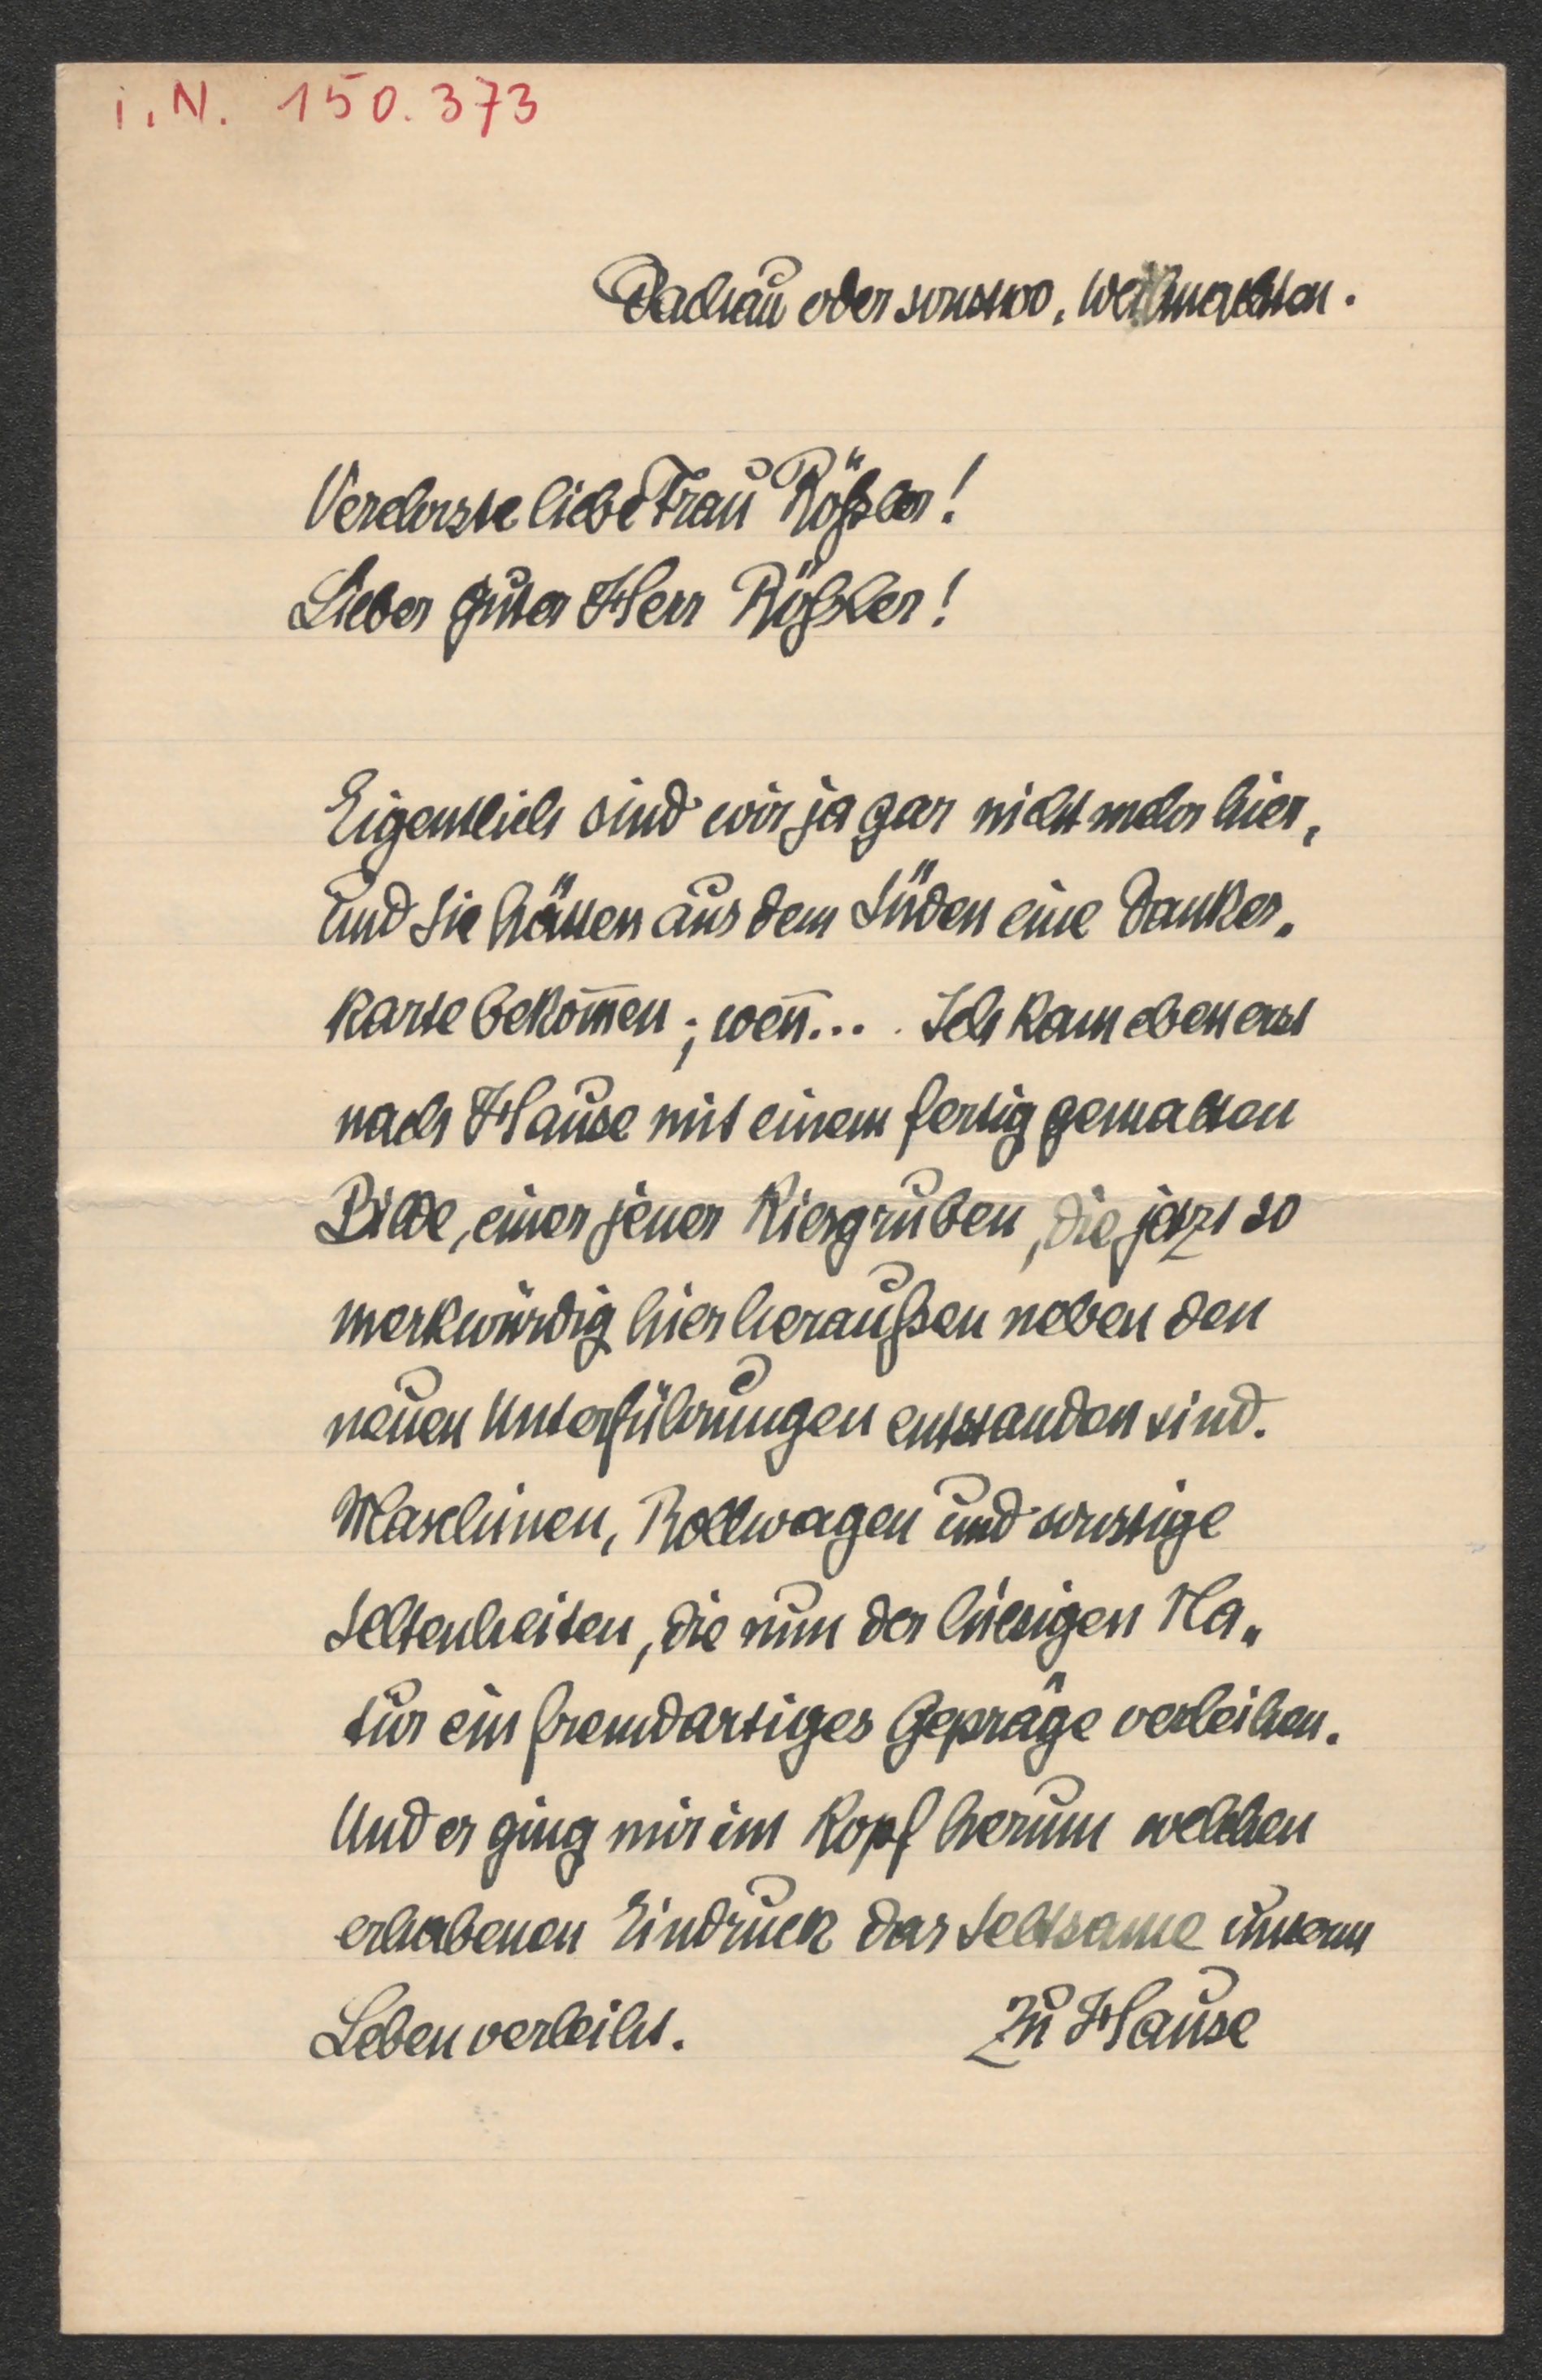 i. N. 150.373
Dachau oder sonstwo, Weihnachten.
Verehrte liebe Frau Rößler!
Lieber guter Herr Rößler!
Eigentlich sind wir ja gar nicht mehr hier,
und Sie hätten aus dem Süden eine Dankes-
karte bekom̄en; wen̄.... Ich kam eben erst
nach Hause mit einem fertig gemalten
Bilde, einer jener Kiesgruben, die jetzt so
merkwürdig hier heraußen neben den
neuen Unterführungen entstanden sind.
Maschinen, Rollwagen und sonstige
Seltenheiten, die nun der hiesigen Na-
tur ein fremdartiges Gepräge verleihen.
Und es ging mir im Kopf herum welchen
erhabenen Eindruck das Seltsame unserm
Leben verleiht. Zu Hause